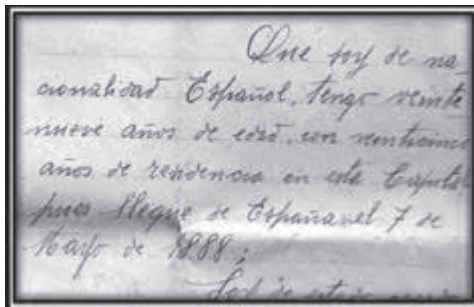 Qué soy de na_
cionalidad Español, tengo veinte
nueve años de edad, con venticinco
años de residencia en esta Capital
pues llegue de España el 7 de
Mayo de 1888;
Soy de estado